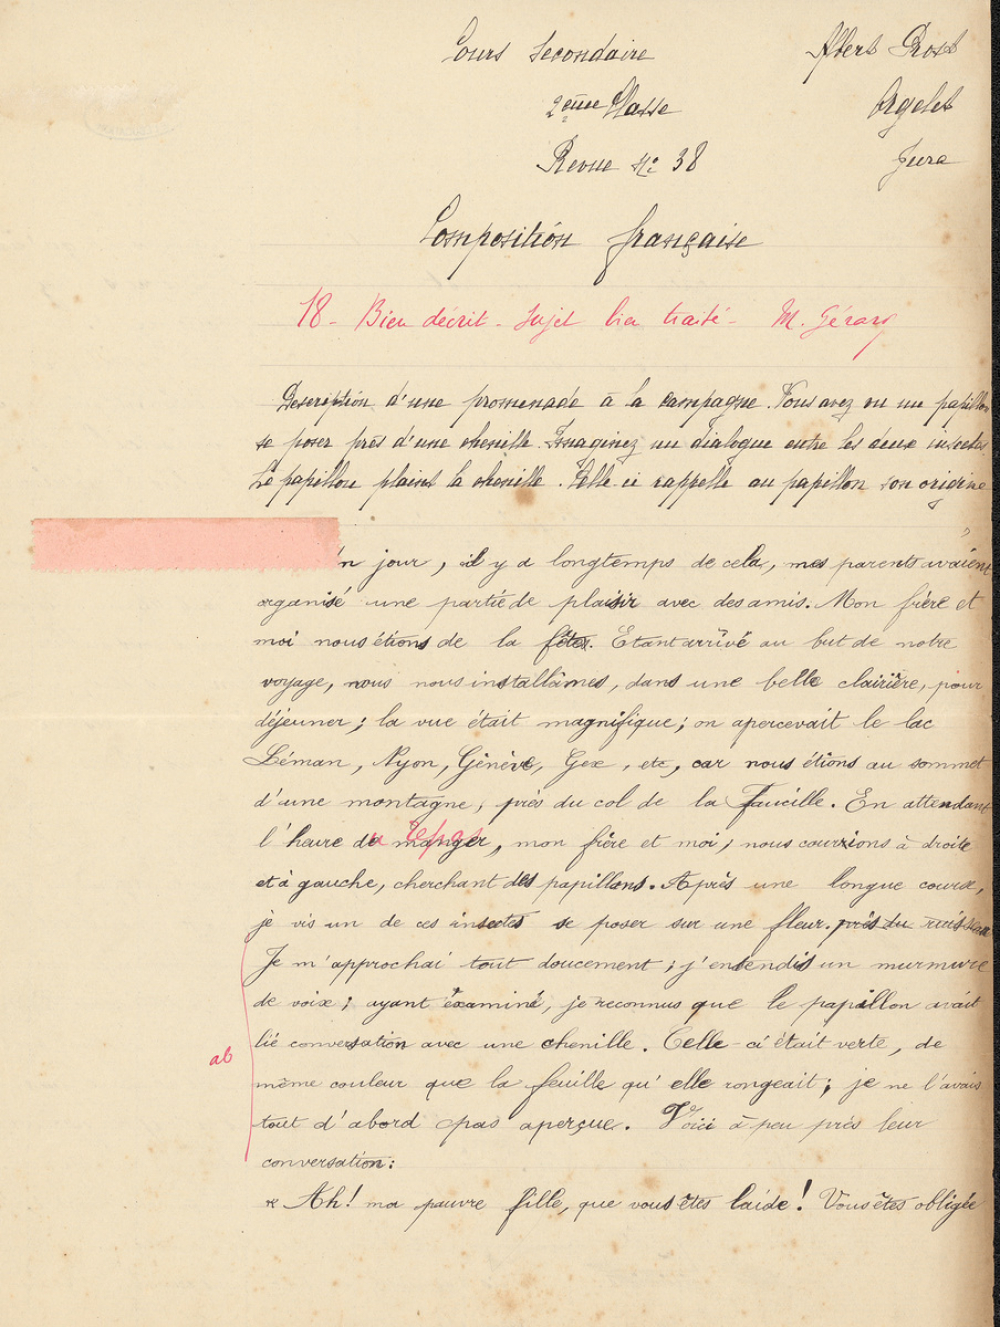 Cours Secondaire
Albert Prost
2ème Classe
Orgelet
Revue N° 38
Jura
Composition française
18 - Bien décrit - Sujet bien traité - M. Gérard
Description d'une promenade à la campagne. Vous avez vu un papillon
se poser près d'une chenille. Imaginez un dialogue entre les deux insectes.
Le papillon plaint la chenille. Celle-ci rappelle au papillon son origine
n jour, il y a longtemps de cela, mes parents avaient
organisé une partie de plaisir avec des amis. Mon frère et
moi nous étions de la fête. Etant arrivé au but de notre
voyage, nous nous installâmes, dans une belle clairière, pour
déjeuner ; la vue était magnifique ; on apercevait le lac
Léman, Nyon, Génève, Gex, etc, car nous étions au sommet
d'une montagne, près du col de la Faucille. En attendant
l'heure du repas manger, mon frère et moi, nous courrions à droite
et à gauche, cherchant des papillons. Après une longue course,
je vis un de ces insectes se poser sur une fleur. près du
Je m'approchai tout doucement ; j'entendis un murmure
de voix ; ayant éxaminé, je reconnus que le papillon avait
lié conversation avec une chenille. Celle-ci était verte, de
ab
même couleur que la feuille qu'elle rongeait ; je ne l'avais
tout d'abord pas aperçue. Voici à peu près leur
conversation :
« Ah ! ma pauvre fille, que vous êtes laide ! Vous êtes obligée